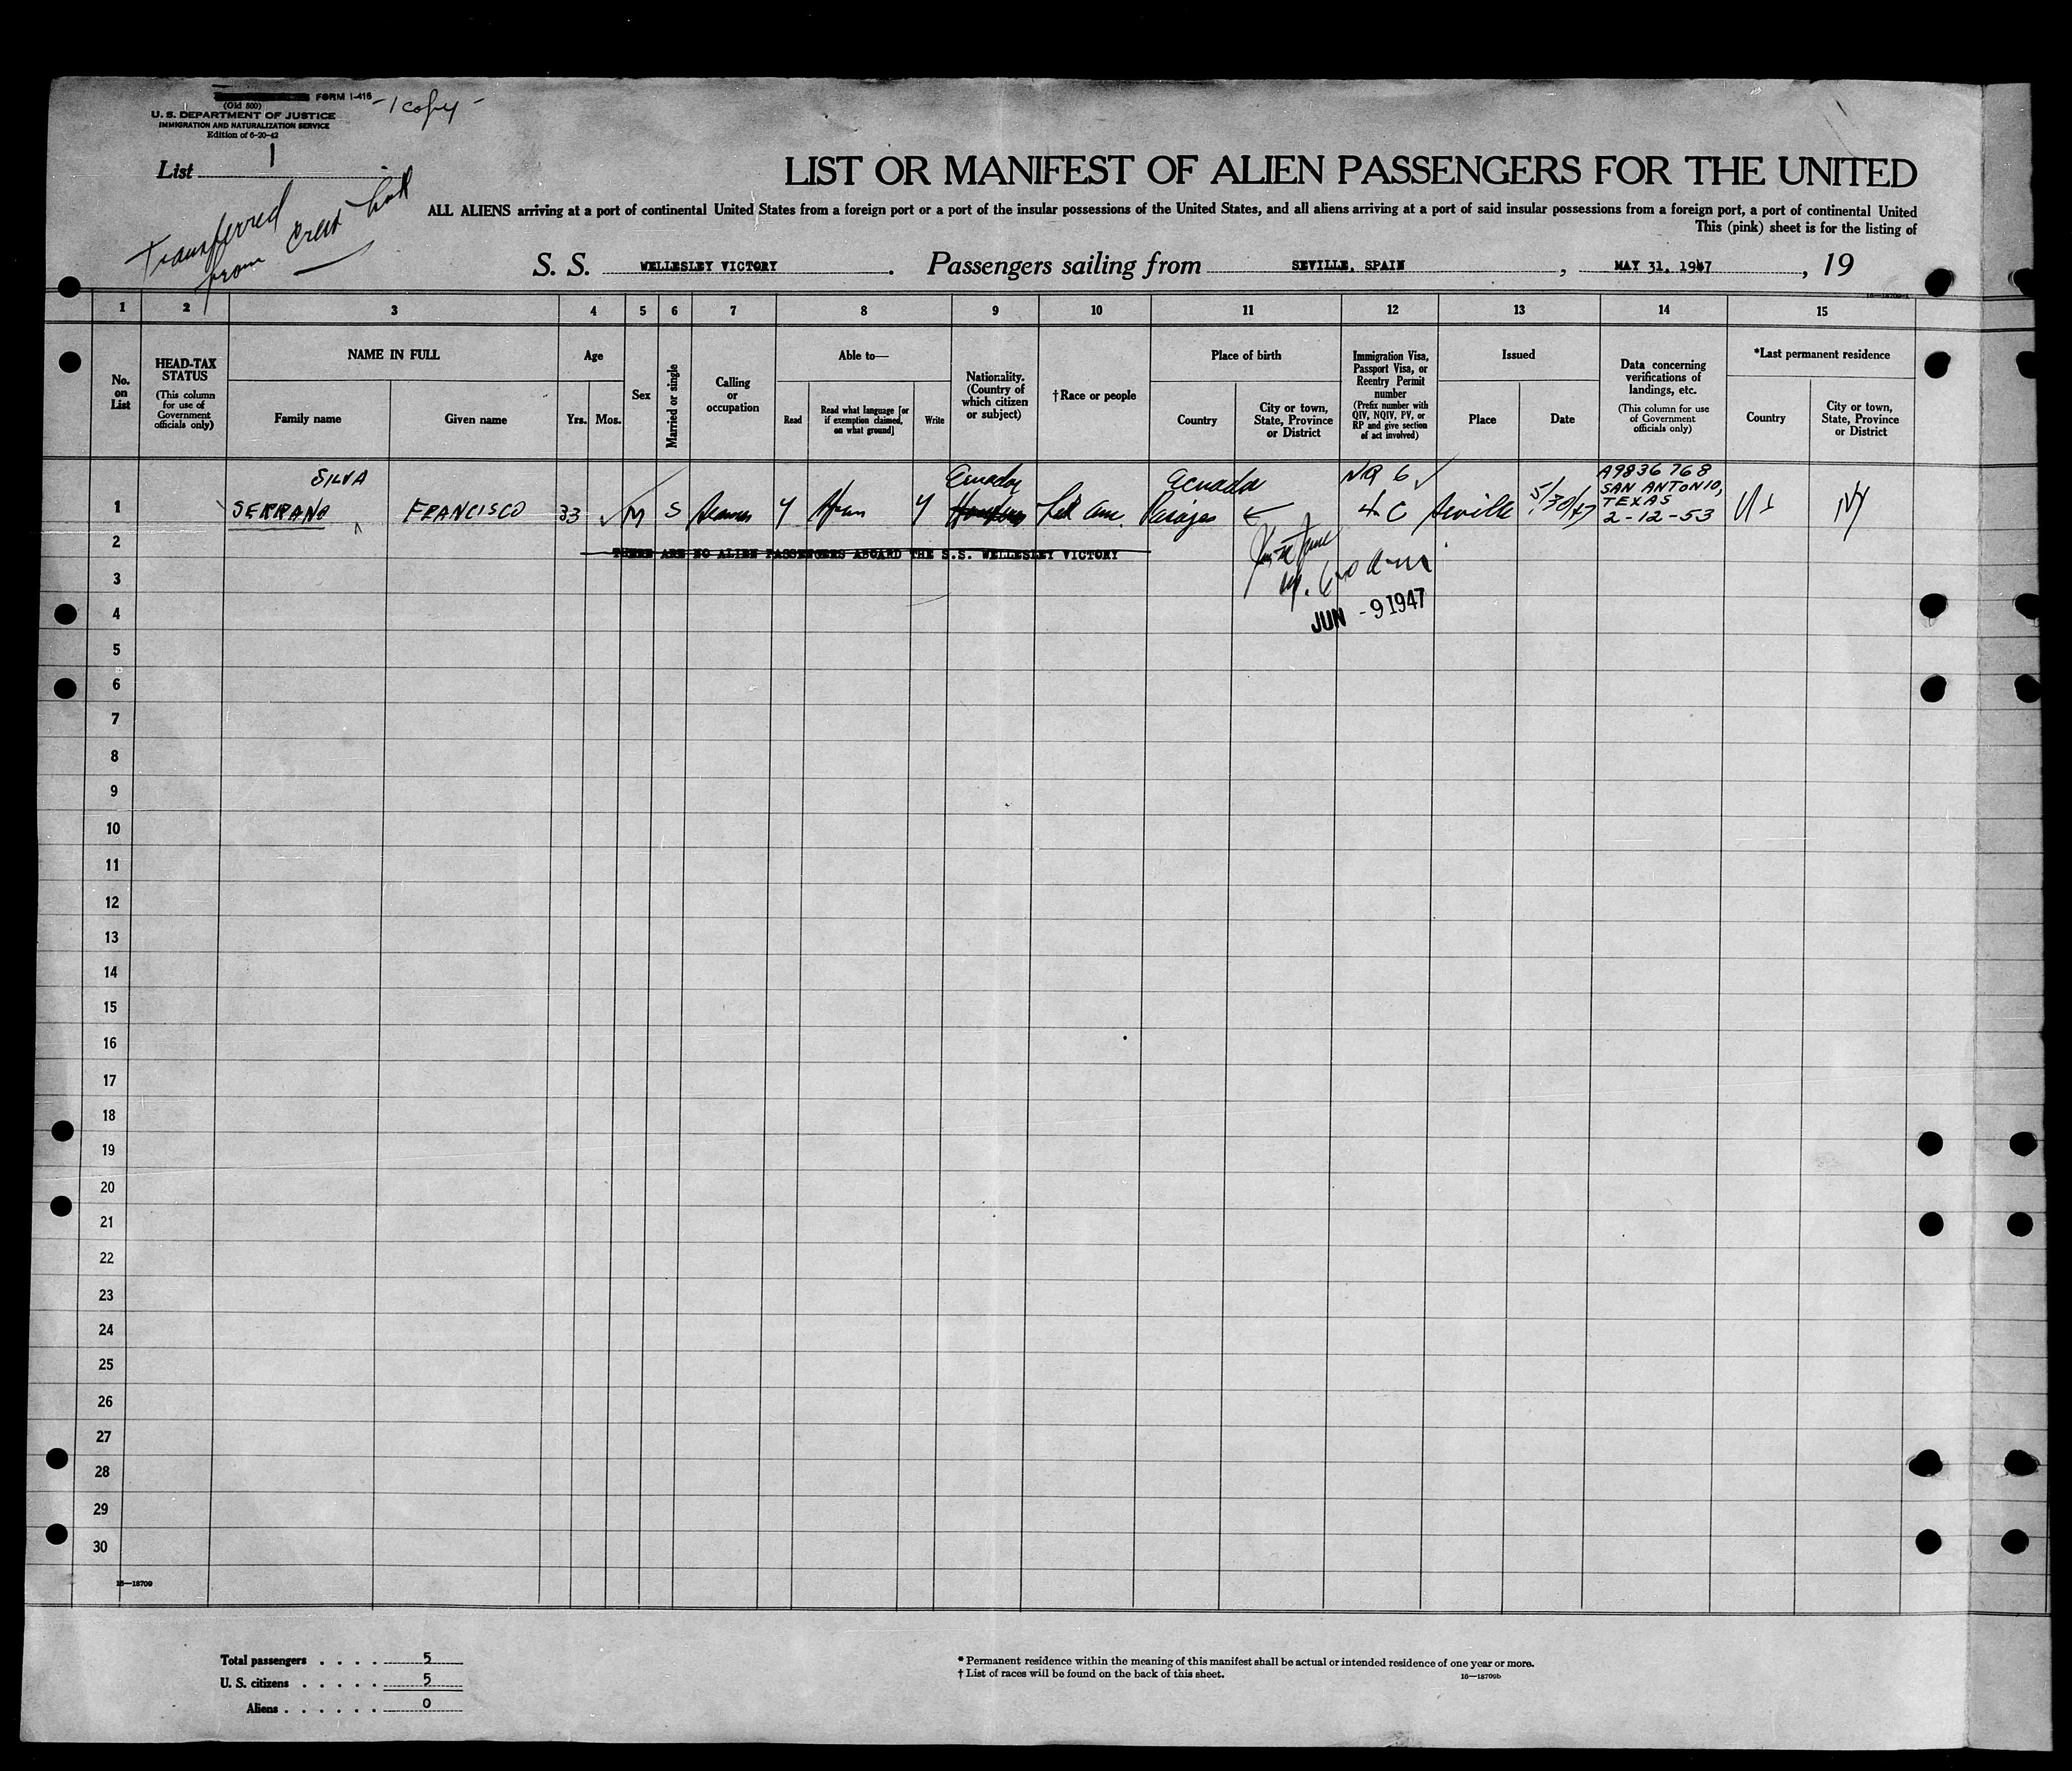 FORM I-415
(Old 500)
- 1 copy -
U. S. DEPARTMENT OF JUSTICE
IMMIGRATION AND NATURALIZATION SERVICE
Edition of 6-20-42
List 1
Transferred
from crew list
LIST OR MANIFEST OF ALIEN PASSENGERS FOR THE UNITED
ALL ALIENS arriving at a port of continental United States from a foreign port or a port of the insular possessions of the United States, and all aliens arriving at a port of said insular possessions from a foreign port, a port of continental United
This (pink) sheet is for the listing of
S. S. WELLESLEY VICTORY . Passengers sailing from SEVILLE, SPAIN , MAY 31, 1947 , 19
1 2 3 4 5 6 7 8 9 10 11 12 13 14 15
No. on List
HEAD-TAX STATUS
(This column for use of Government officials only)
NAME IN FULL
Family name
Given name
Age
Yrs.
Mos.
Sex
Married or single
Calling or occupation
Able to—
Read
Read what language [or if exemption claimed, on what ground]
Write
Nationality. (Country of which citizen or subject)
†Race or people
Place of birth
Country
City or town, State, Province or District
Immigration Visa, Passport Visa, or Reentry Permit number
(Prefix number with QIV, NQIV, PV, or RP and give section of act involved)
Issued
Place
Date
Data concerning verifications of landings, etc.
(This column for use of Government officials only)
*Last permanent residence
Country
City or town, State, Province or District
SILVA
Ecuador
Ecuador
NQ 6
A9836768
SAN ANTONIO,
TEXAS
2-12-53
1 SERRANO FRANCISCO 33 M S Seaman Y Span Y Lat Am. 4 C Seville 5/30/47 US NY
2
THERE ARE NO ALIEN PASSENGERS ABOARD THE S.S. WELLESLEY VICTORY
3
JUN - 9 1947
4
5
6
7
8
9
10
11
12
13
14
15
16
17
18
19
20
21
22
23
24
25
26
27
28
29
30
16—18709
Total passengers . . . . 5
U. S. citizens . . . . . 5
Aliens . . . . . . 0
* Permanent residence within the meaning of this manifest shall be actual or intended residence of one year or more.
† List of races will be found on the back of this sheet.
16—18709b